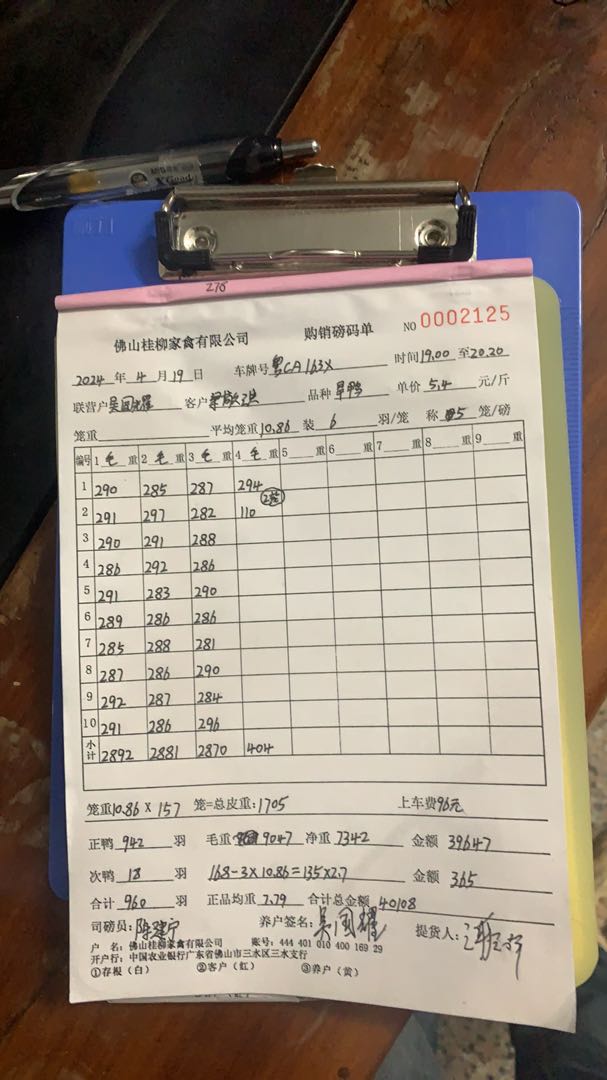 XGood
276
佛山桂柳家禽有限公司 购销磅码单 NO 0002125
2024 年 4 月 19 日 车牌号 粤CA163X 时间 19.00 至 20.20
联营户 吴国耀 客户 品种 旱鸭 单价 5.4 元/斤
笼重 平均笼重 10.86 装 6 羽/笼 称 5 笼/磅
编号 1 毛 重 2 毛 重 3 毛 重 4 毛 重 5 重 6 重 7 重 8 重 9 重
1 290 285 287 294
2 291 297 282 110 2笼
3 290 291 288
4 286 292 286
5 291 283 290
6 289 286 286
7 285 288 281
8 287 286 290
9 292 287 284
10 291 286 296
小计 2892 2881 2870 404
笼重 10.86 X 157 笼=总皮重: 1705 上车费96元
正鸭 942 羽 毛重 9047 净重 7342 金额 39647
次鸭 18 羽 168-3×10.86=135×2.7 金额 365
合计 960 羽 正品均重 7.79 合计总金额 40108
司磅员: 陈建宁 养户签名: 吴国耀 提货人:
户 名: 佛山桂柳家禽有限公司 账号: 444 401 010 400 169 29
开户行: 中国农业银行广东省佛山市三水区三水支行
①存根（白） ②客户（红） ③养户（黄）